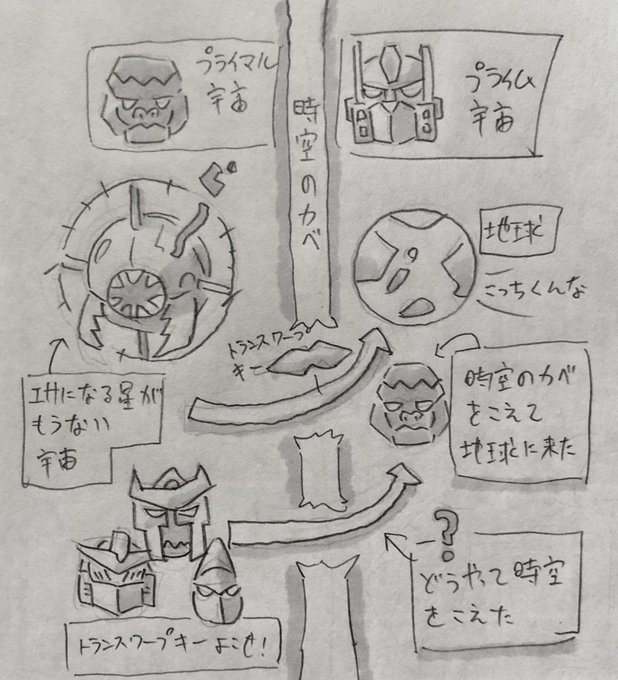 プライマル
宇宙
プライム
宇宙
時空のカベ
地球
こっちくんな
トランスワープ
キー
エサになる星が
もうない
宇宙
時空のカベ
をこえて
地球に来た
?
どうやって時空
をこえた
トランスワープキーよこせ!